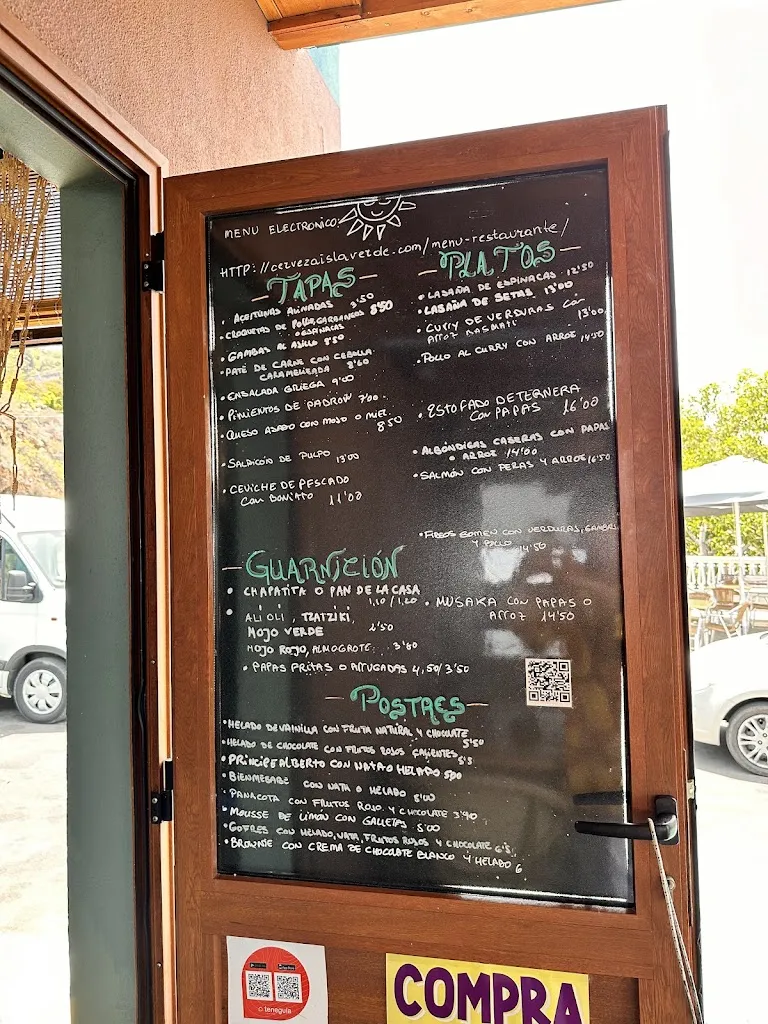 MENU ELECTRONICO:
HTTP://cervezaislaverde.com/menu-restaurante/
TAPAS
• ACEITUNAS ALIÑADAS 3'50
• CROQUETAS DE POLLO, GARBANZOS 8'50
O ESPINACAS
• GAMBAS AL AJILLO 8'50
• PATÉ DE CARNE CON CEBOLLA
CARAMELIZADA 8'60
• ENSALADA GRIEGA 9'00
• PIMIENTOS DE PADRON 7'00
• QUESO ASADO CON MOJO O MIEL
8'50
• SALPICÓN DE PULPO 13'00
• CEVICHE DE PESCADO
CON BONITO 11'00
PLATOS
• LASAÑA DE ESPINACAS 12'50
• LASAÑA DE SETAS 13'00
• CURRY DE VERDURAS CON
ARROZ BASMATI 13'00
• POLLO AL CURRY CON ARROZ 14'50
• ESTOFADO DE TERNERA
CON PAPAS 16'00
• ALBÓNDIGAS CASERAS CON PAPAS
O ARROZ 14'00
• SALMÓN CON PERAS Y ARROZ 16'50
• FIDEOS SOMEN CON VERDURAS, GAMBAS
Y POLLO 14'50
• MUSAKA CON PAPAS O
ARROZ 14'50
GUARNICIÓN
• CHAPATITA O PAN DE LA CASA
1,10 / 1,20
• ALIOLI, TZATZIKI,
MOJO VERDE 2'50
MOJO ROJO, ALMOGROTE 3'80
• PAPAS FRITAS O ARRUGADAS 4,50/3'50
POSTRES
• HELADO DE VAINILLA CON FRUTA NATURAL Y CHOCOLATE
5'50
• HELADO DE CHOCOLATE CON FRUTOS ROJOS CALIENTES 5'5
• PRINCIPE ALBERTO CON NATA O HELADO 5'00
• BIENMESABE CON NATA O HELADO 5'00
• PANACOTA CON FRUTOS ROJO Y CHOCOLATE 3'90
• MOUSSE DE LIMÓN CON GALLETAS 5'00
• GOFRES CON HELADO, NATA, FRUTOS ROJOS Y CHOCOLATE 6'5
• BROWNIE CON CREMA DE CHOCOLATE BLANCO Y HELADO 6
teneguía
COMPRA